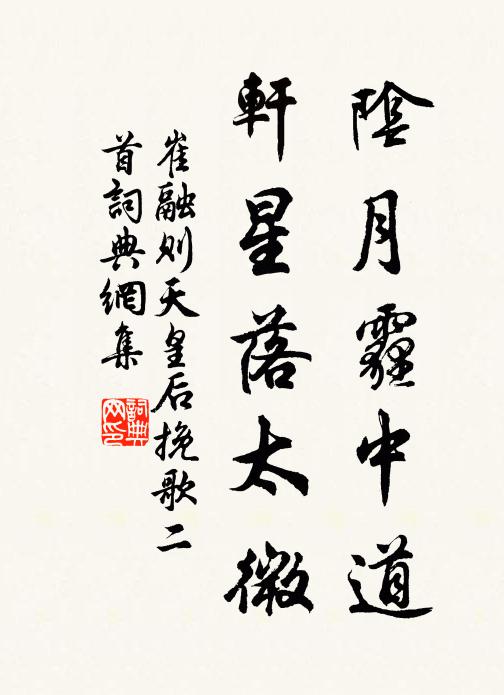 陰月霾中道
軒星落太微
崔融则天皇后挽歌二
首詞典網集
詞典
网印